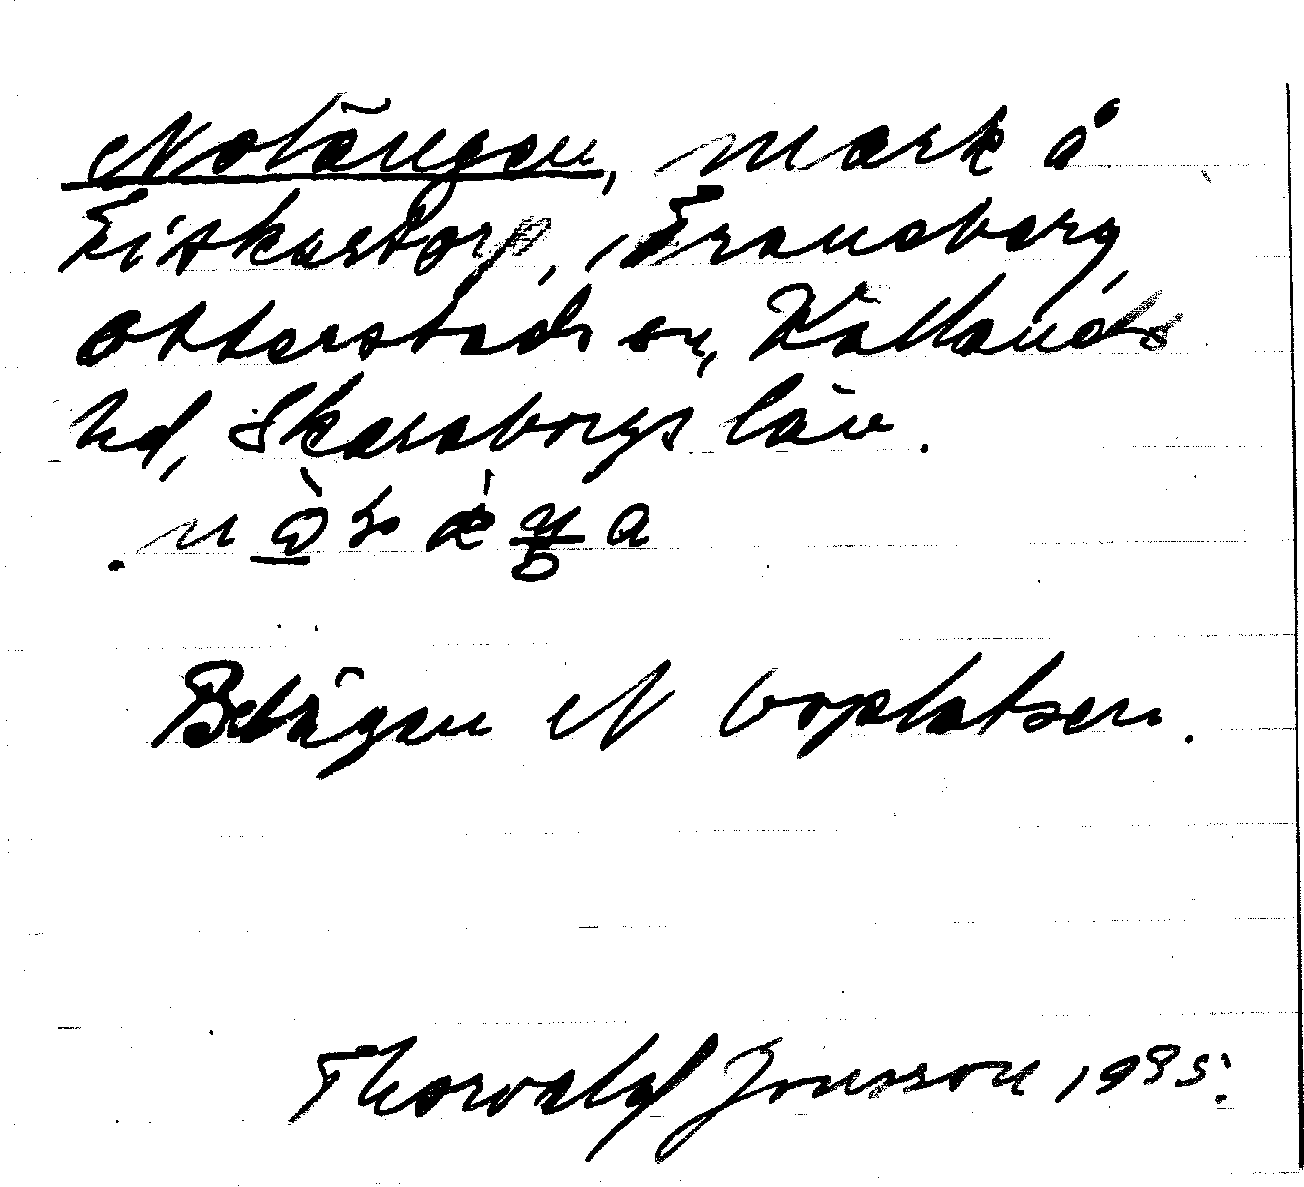 Notängen, mark å
Fiskartorp, Traneberg,
Otterstads sn, Kållands
hd, Skaraborgs län.
Belägen N boplatsen.
Thorvald Jonsson 1985.